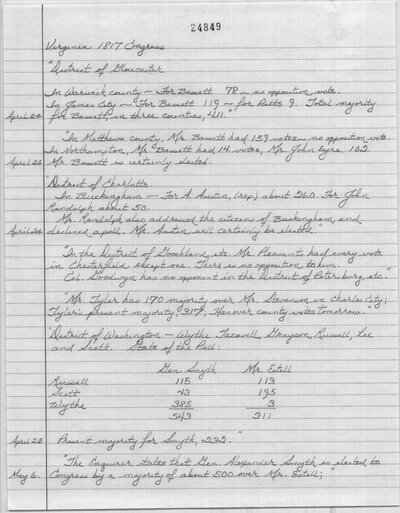 24849
Virginia 1817 Congress
"District of Gloucester
In Warwick county - For Bassett 78 - no opposition vote.
In James City - "For Bassett 119 - for Potts 9. Total majority
April 24 for Bassett in three counties, 411."
"In Matthews county, Mr. Bassett had 159 votes - no opposition vote.
In Northampton, Mr. Bassett had 14 votes, Mr. John Eyre, 102.
April 25 Mr. Bassett is certainly elected.
District of Charlotte
In Buckingham - For A. Austin, (rep.) about 260. For John
Randolph about 50.
Mr. Randolph also addressed the citizens of Buckingham, and
April declined a poll. Mr. Austin will certainly be elected."
"In the District of Goochland, etc. Mr. Pleasants had every vote
in Chesterfield except one. There is no opposition to him.
Col. Goodwyn has no opponent in the District of Petersburg, etc."
"Mr. Tyler has 170 majority over Mr. Stevenson in Charles City;
Tyler's present majority, 317; Hanover county votes tomorrow."
District of Washington - Wythe Tazewell, Grayson, Russell, Lee
and Scott. State of the Poll:
Gen. Smyth Mr. Estill
Russell 115 113
Scott 43 195
Wythe 385 3
543 311
April 25 Present majority for Smyth, 232."
"The Enquirer states that Gen. Alexander Smyth is elected to
May 6. Congress by a majority of about 500 over Mr. Estill;"